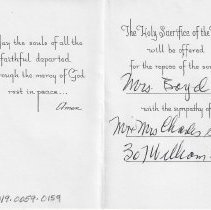 ay the souls of all the
faithful departed
rough the mercy of God
rest in peace...
Amen
The Holy Sacrifice of the
will be offered
for the repose of the soul
Mrs Boyd
with the sympathy of
Mr + Mrs Charles
307 William
19.0059.0159